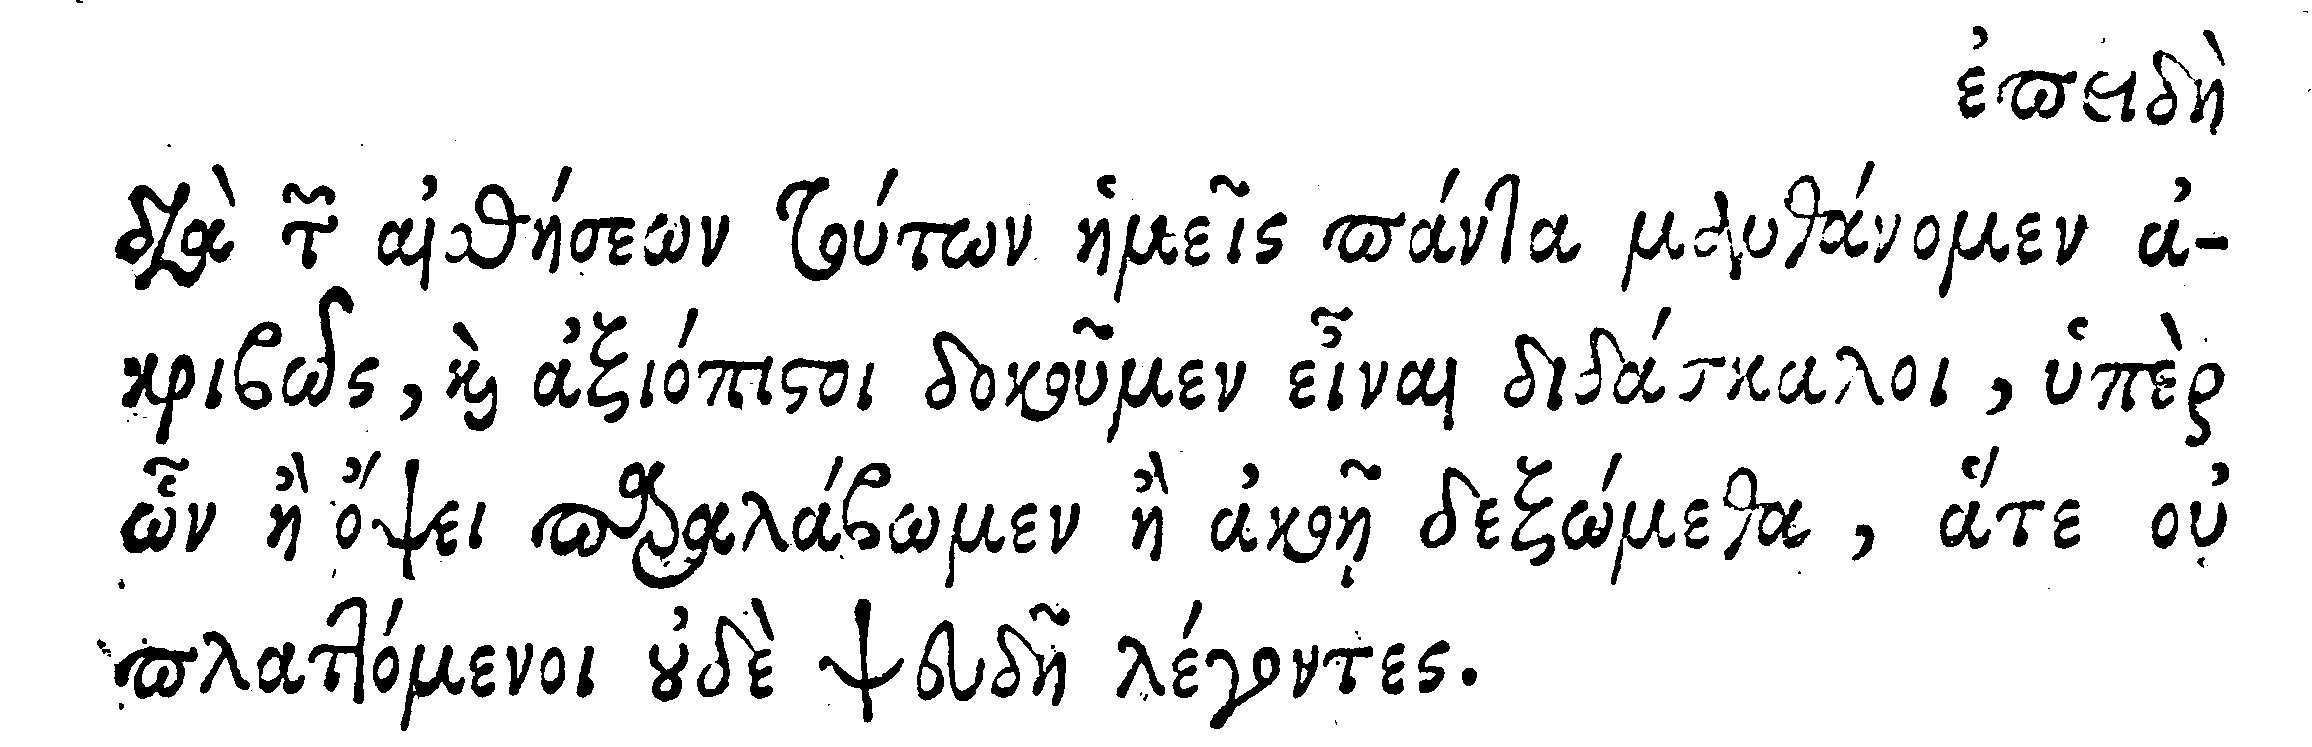 ἐπειδὴ
διὰ τῶν αἰσθήσεων τούτων ἡμεῖς πάντα μανθάνομεν ἀ-
κριβῶς, καὶ ἀξιόπιστοι δοκοῦμεν εἶναι διδάσκαλοι, ὑπὲρ
ὧν ἢ ὄψει παραλάβωμεν ἢ ἀκοῇ δεξώμεθα, ἅτε οὐ
πλαττόμενοι οὐδὲ ψευδῆ λέγοντες.